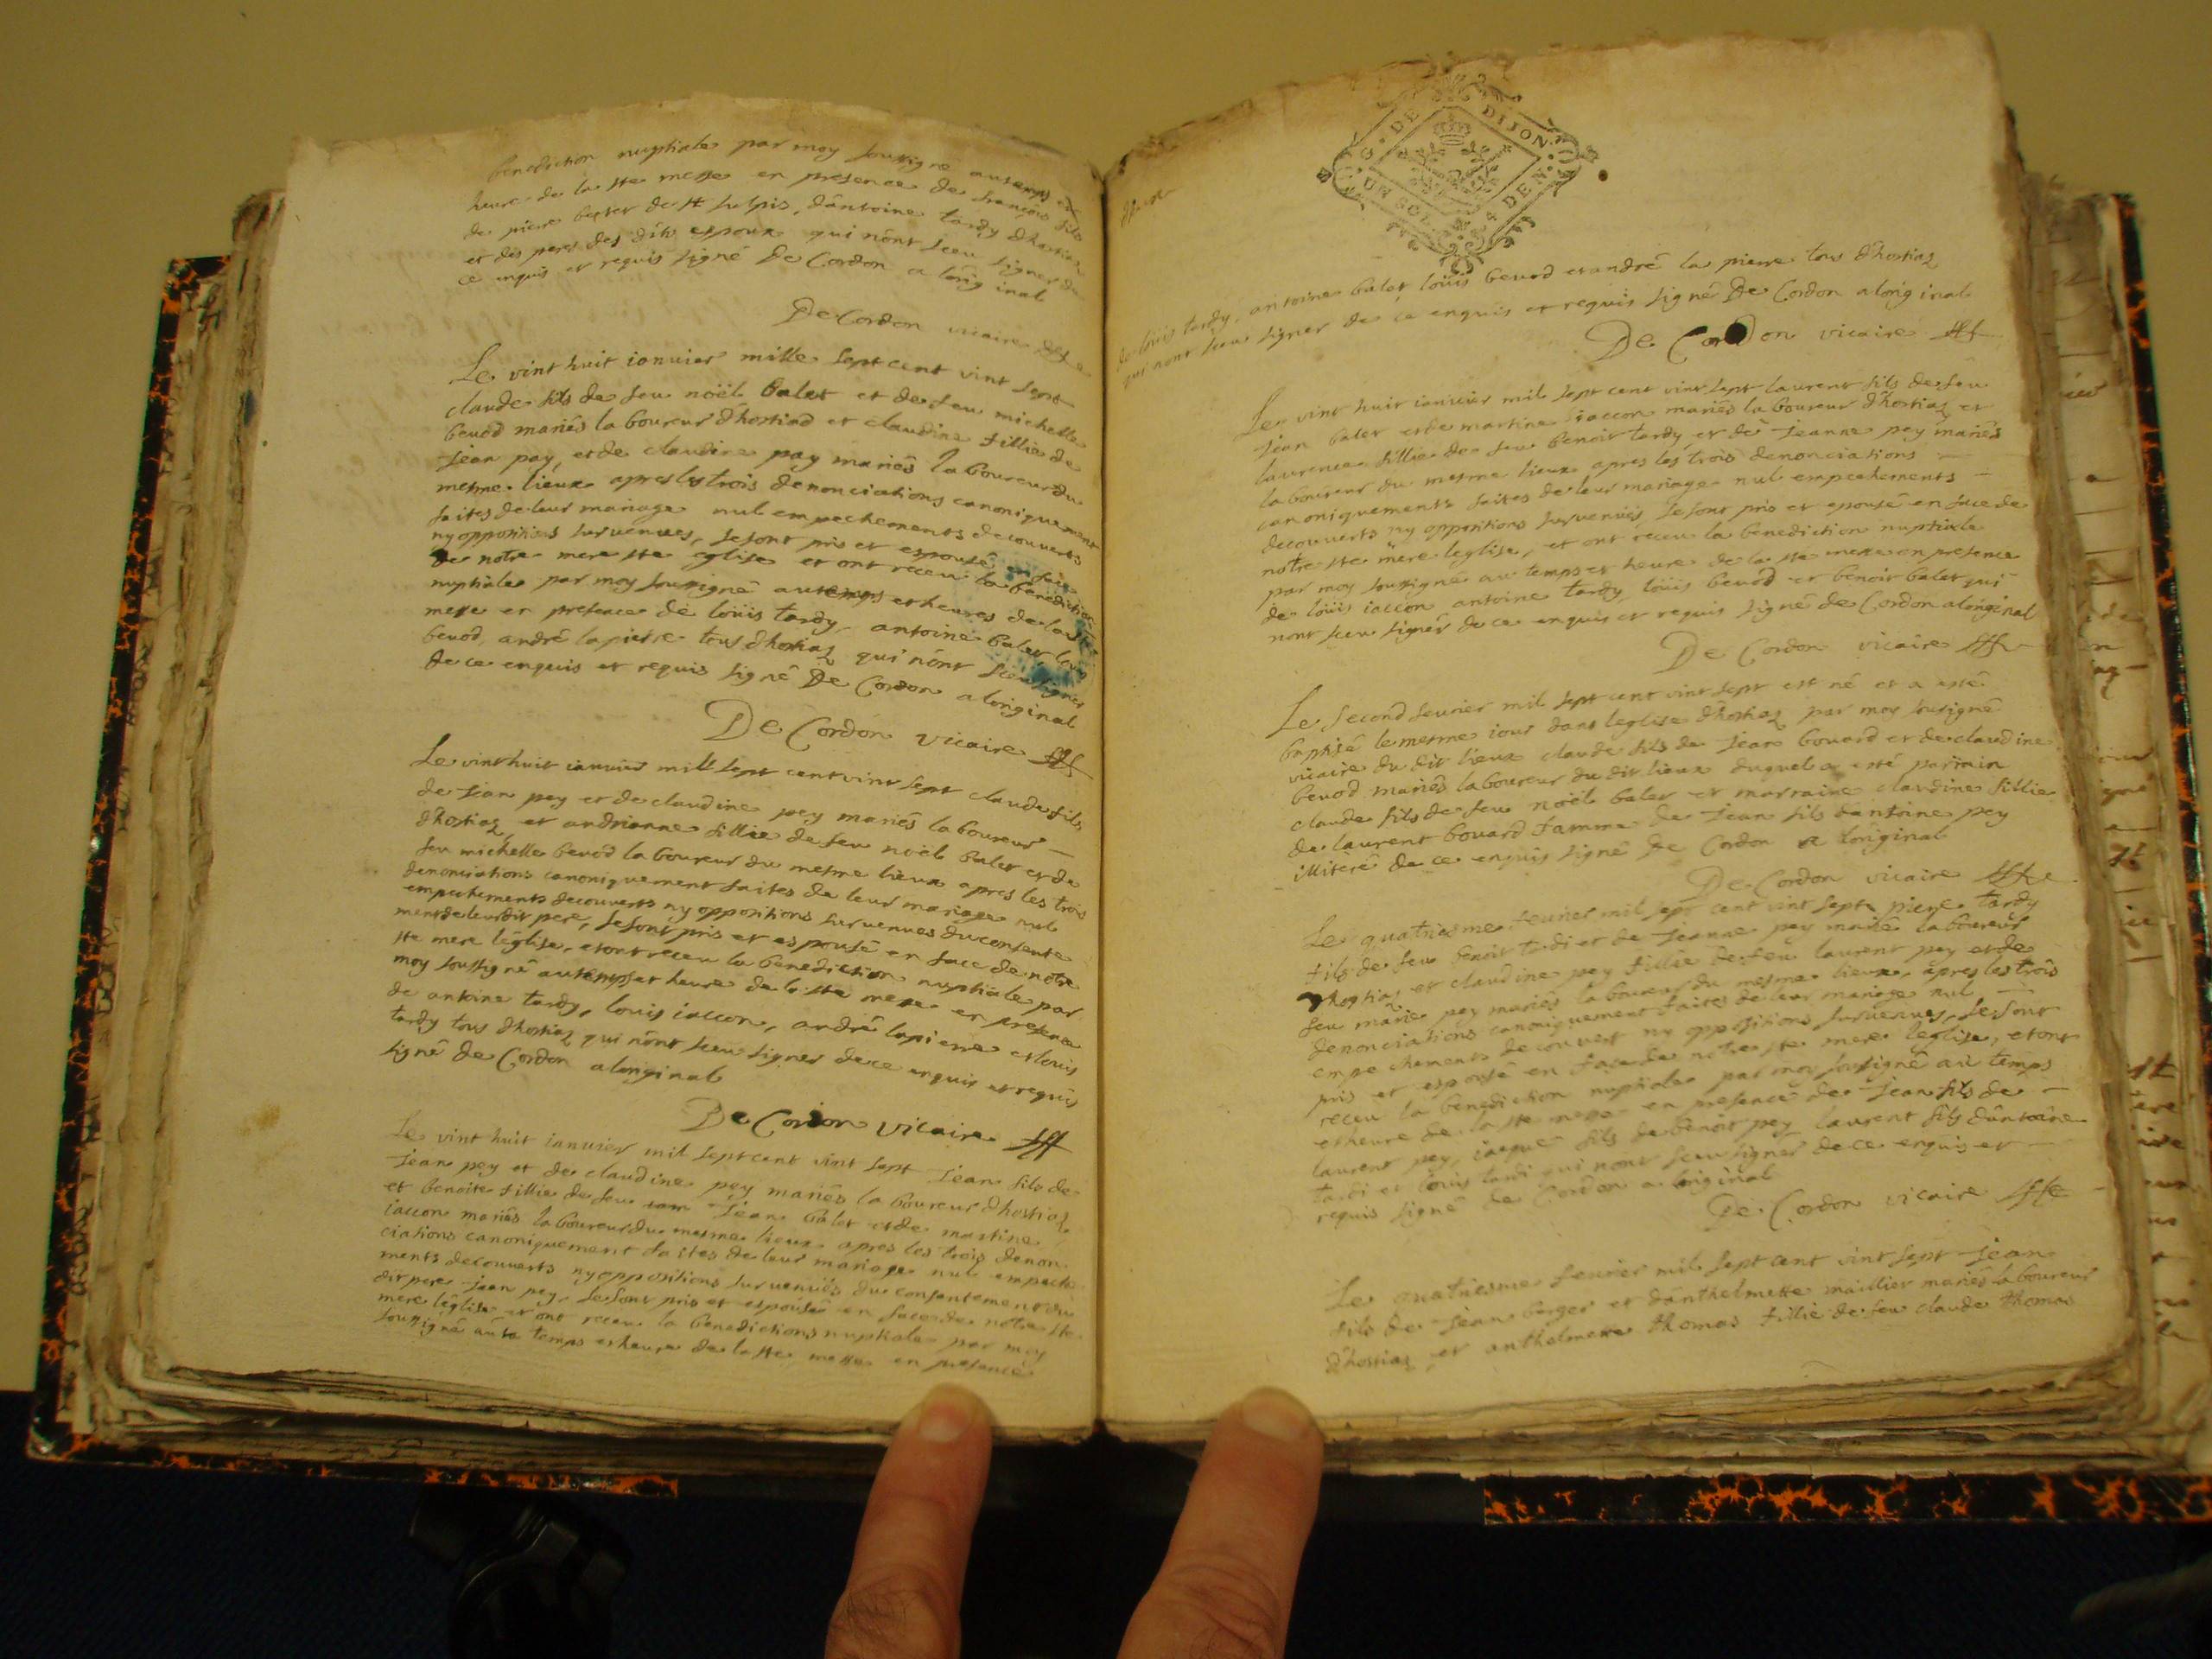 benediction nuptiale par moy soussigné au temps et
heure de la ste messe en presence de françois fils
de piere berter de st sulpis, d'antoine tardy d'hostiaz
et des peres des dits espoux qui n'ont sceu signer de
ce enquis et requis signé De Cordon a l'original
De Cordon vicaire
Le vint huit ianvier mille sept cent vint sept
claude fils de feu noël balet et de feu michelle
bevod mariés laboureur d'hostiad et claudine fillie de
Jean pay, et de claudine pay mariés laboureur du
mesme lieux apres les trois denonciations canoniquement
faites de leur mariage nul empechements decouverts
ny oppositions survenues, se sont pris et espousé en face
de notre mere ste eglise et ont receu la benediction
nuptiale par moy sousigné au temps et heures de la ste
messe en presence de loüis tardy, antoine balet, louis
bevod, andré lapierre tous d'hostiaz qui n'ont sceu signer
de ce enquis et requis signé De Cordon a loriginal
De Cordon vicaire
Le vint huit ianvier mill sept cent vint sept claude fils
de Jean pey et de claudine pey mariés laboureur
d'hostiaz et andrianne fillie de feu noël balet et de
feu michelle bevod laboureur du mesme lieux apres les trois
denonciations canoniquement faites de leur mariage nul
empechements decouverts ny oppositions survenues du consente
ment de leurdit pere, se sont pris et espousé en face de notre
ste mere l'église, et ont receu la benediction nuptiale par
moy soussigné au temps et heure de la ste messe en presence
de antoine tardy, louis iaccon, andré lapierre et louis
tardy tous d'hostiaz qui n'ont sceu signer de ce enquis et requis
signé de Cordon a loriginal
De Cordon vicaire
Le vint huit ianvier mil sept cent vint sept Jean fils de
Jean pey et de claudine pey mariés laboureur d'hostiaz
et benoite fillie de feu Jean balet et de martine
iaccon mariés laboureur du mesme lieux apres les trois denon
ciations canoniquement faites de leur mariage nul empeche
ments decouverts ny oppositions survenües du consentement du
dit pere Jean pey, se sont pris et espousé en face de notre ste
mere l'église et ont receu la benedictions nuptiale par moy
sousigné au temps et heure de la ste messe en presence
G. DE DIJON
UN SOL 4 DEN.
de loüis tardy, antoine balet loüis bevod et andré la pierre tous d'hostiaz
qui n'ont sceu signer de ce enquis et requis signé De Cordon a loriginal
De Cordon vicaire
Le vint huit ianvier mil sept cent vint sept laurent fils de feu
Jean balet et de martine iaccon mariés laboureur d'hostiaz et
laurence fillie de feu benoit tardy et de Jeanne pey mariés
laboureur du mesme lieux apres les trois denonciations
canoniquements faites de leur mariage nul empechements
decouverts ny oppositions survenües se sont pris et epousé en face de
notre ste mere leglise, et ont receu la benediction nuptiale
par moy sousigné au temps et heure de la ste messe en presence
de loüis iaccon antoine tardy, loüis bevod et benoit balet qui
n'ont sceu signer de ce enquis et requis signé de Cordon a loriginal
De Cordon vicaire
Le second fevrier mil sept cent vint sept est né et a esté
baptisé le mesme iour dans leglise d'hostiaz par moy sousigné
vicaire du dit lieux claude fils de Jean bovard et de claudine
bevod mariés laboureur du dit lieux duquel a esté parrain
claude fils de feu noël balet et marraine claudine fillie
de laurent bovard famme de Jean fils d'antoine pey
illiteré de ce enquis signé De Cordon a loriginal
De Cordon vicaire
Le quatriesme fevrier mil sept cent vint sept piere tardy
fils de feu benoit tardi et de Jeanne pey marié laboureur
d'hostiaz et claudine pey fillie de feu laurent pey et de
feu marie pey mariés laboureur du mesme lieux, apres les trois
denonciations canoniquement faites de leur mariage nul
empechements decouvert ny oppositions survenues, se sont
pris et espousé en face de notre ste mere leglise, et ont
receu la benediction nuptiale par moy soussigné au temps
et heure de la ste messe en presence de Jean fils de
laurent pey, iaque fils de benoit pey, laurent fils d'antoine
tardi et louis tardi qui n'ont sceu signer de ce enquis et
requis signé de Cordon a loriginal
De Cordon vicaire
Le quatriesme fevrier mil sept cent vint sept Jean
fils de Jean berger et d'anthelmette maillier mariés laboureur
d'hostiaz, et anthelmette thomas fillie de feu claude thomas